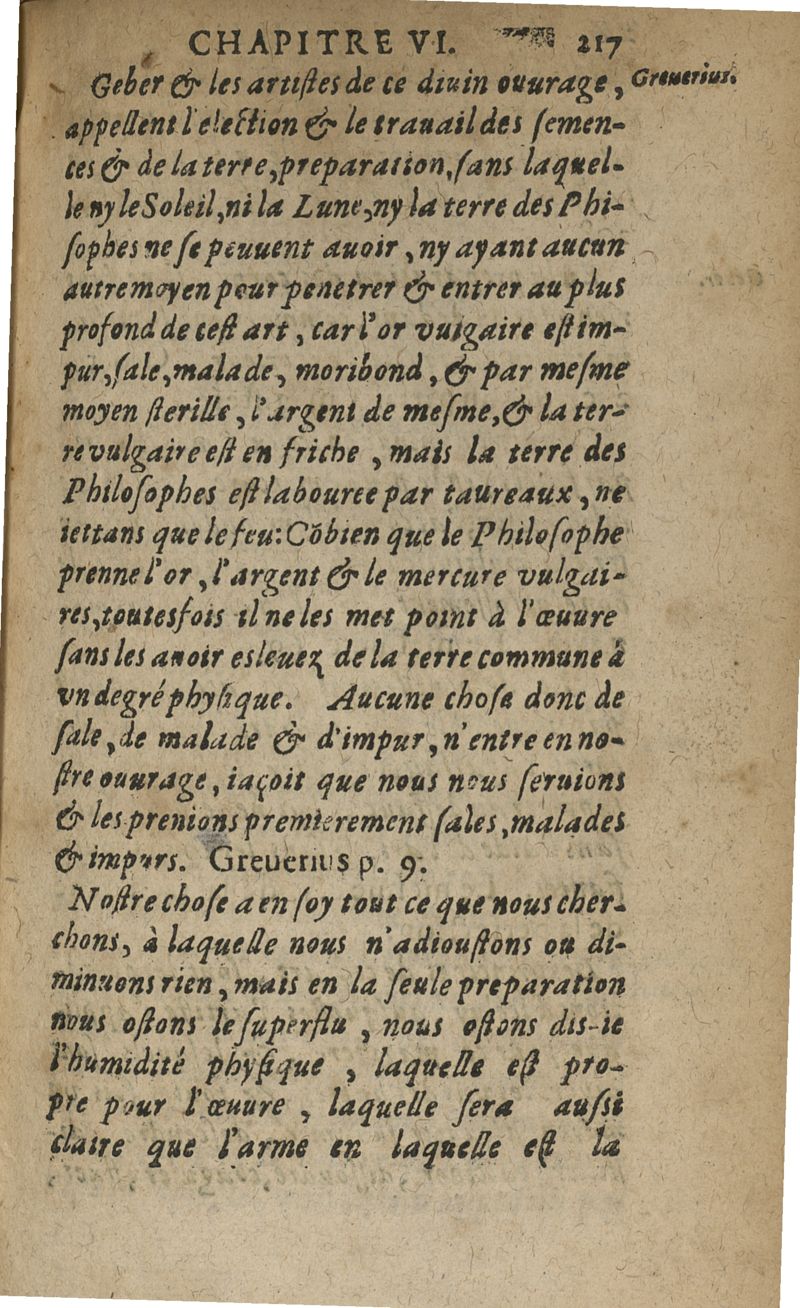 CHAPITRE VI. 217
Geber & les artistes de ce diuin ouurage, Greuerius.
appellent l'election & le trauail des semen-
ces & de la terre, preparation, sans laquel-
le ny le Soleil, ni la Lune, ny la terre des Phi-
sophes ne se peuuent auoir, ny ayant aucun
autre moyen pour penetrer & entrer au plus
profond de cest art, car l'or vulgaire est im-
pur, sale, malade, moribond, & par mesme
moyen sterille, l'argent de mesme, & la ter-
re vulgaire est en friche, mais la terre des
Philosophes est labouree par taureaux, ne
iettans que le feu: Cõbien que le Philosophe
prenne l'or, l'argent & le mercure vulgai-
res, toutesfois il ne les met point à l'œuure
sans les auoir esleuez de la terre commune à
vn degré physique. Aucune chose donc de
sale, de malade & d'impur, n'entre en no-
stre ouurage, iaçoit que nous nous seruions
& les prenions premierement sales, malades
& impurs. Greuerius p. 9.
Nostre chose a en soy tout ce que nous cher-
chons, à laquelle nous n'adioustons ou di-
minuons rien, mais en la seule preparation
nous ostons le superflu, nous ostons dis-ie
l'humidité physique, laquelle est pro-
pre pour l'œuure, laquelle sera aussi
claire que l'arme en laquelle est la